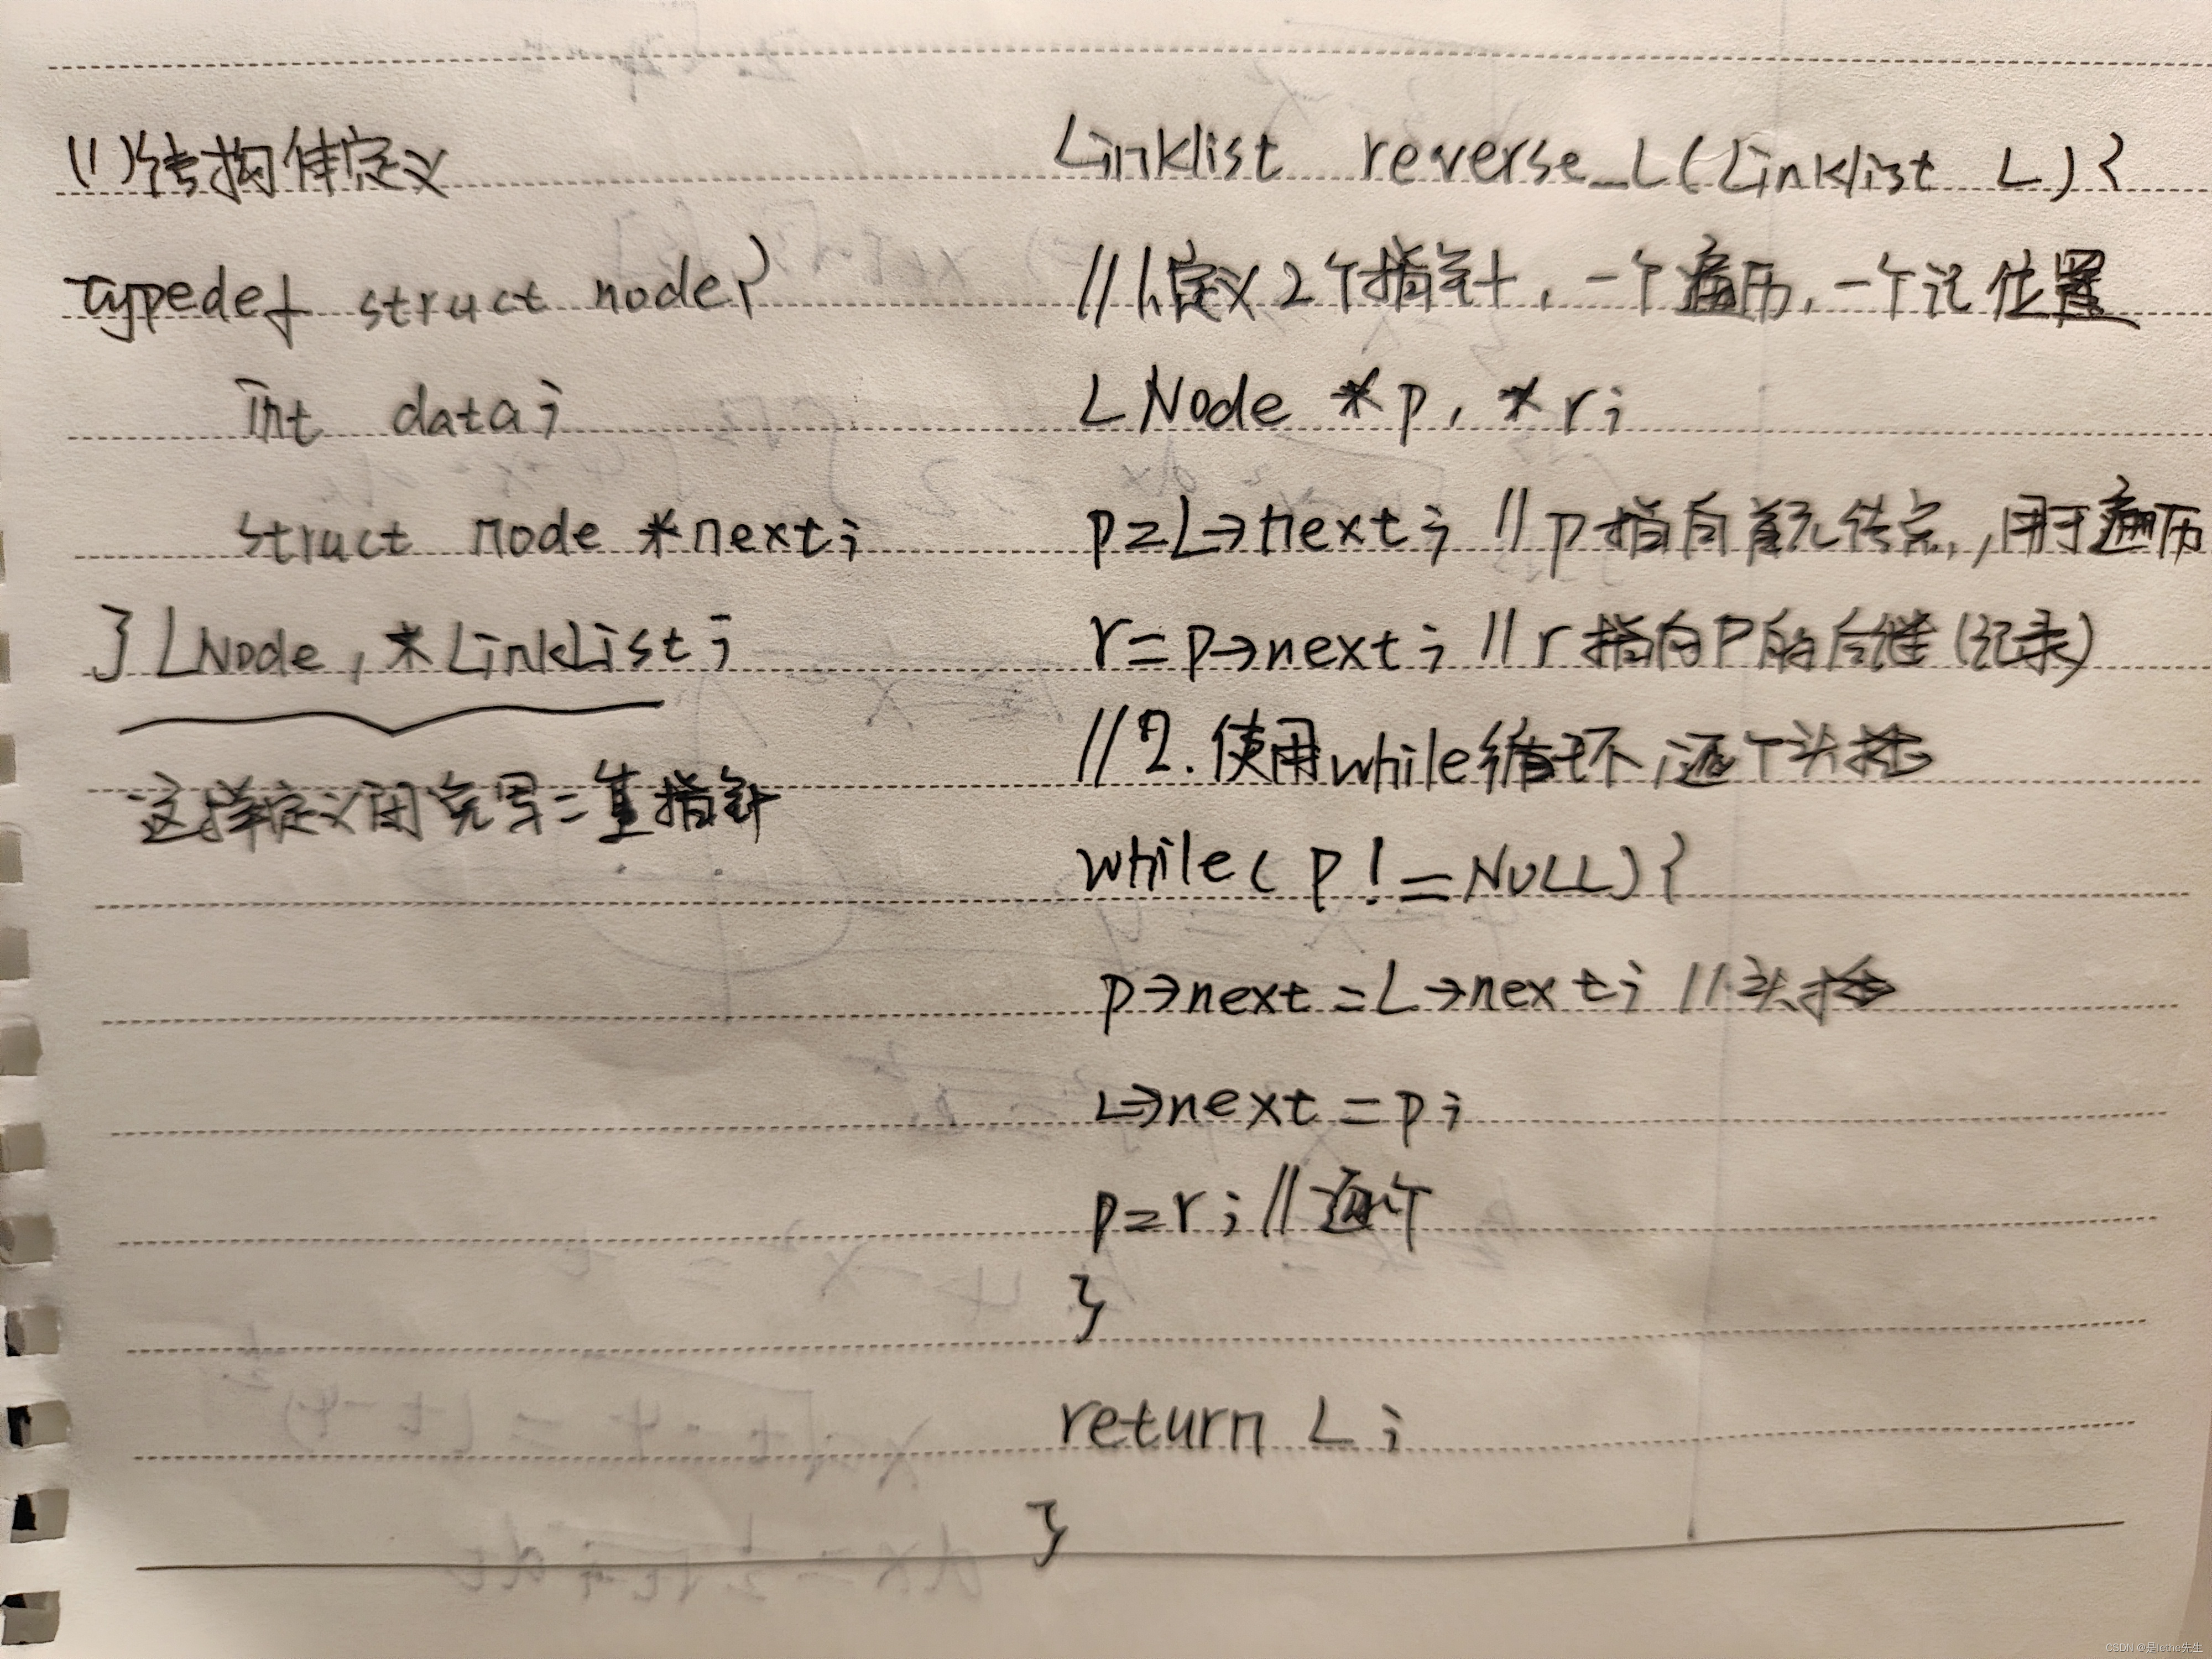 (1)结构体定义
typedef struct node{
int data;
struct node *next;
} LNode, *LinkList;
这样定义闭免写二重指针
Linklist reverse_L(Linklist L){
//1.定义2个指针,一个遍历,一个记位置
LNode *p, *r;
p=L->next; //p指向首元结点,用于遍历
r=p->next; //r指向P的后继(记录)
//2.使用while循环,逐个头插
while(p!=NULL){
p->next=L->next; //头插
L->next=p;
p=r;//逐个
}
return L;
}
CSDN @是lethe先生